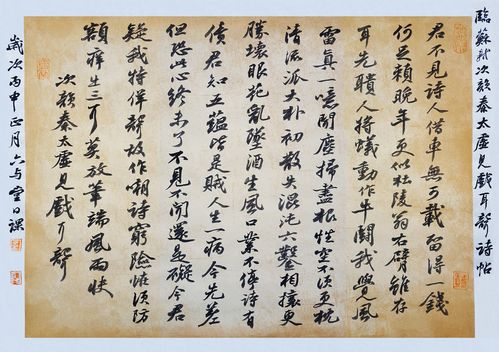 臨蘇軾次韻秦太虛見戲耳聾詩帖
君不見詩人借車無可載留得一錢
何足賴晚年更似杜陵翁右臂雖存
耳先聵人將蟻動作牛鬪我覺風
雷真一噫聞塵掃盡根性空不須更枕
清流派大朴初散失混沌六鑿相攘更
勝壞眼花亂墜酒生風口業不停詩有
債君知五蘊皆是賊人生一病今先差
但恐此心終未了不見不聞還是礙今君
疑我特佯聾故作嘲詩窮險怪須防
額癢生三耳莫放筆端風雨快
次韻秦太虛見戲耳聾
歲次丙申正月六与堂日課